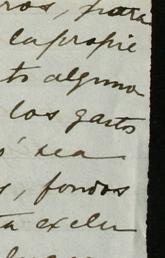 ros, para
la propie
to alguno
los gasto
o sea
s, fondos
ta exclu